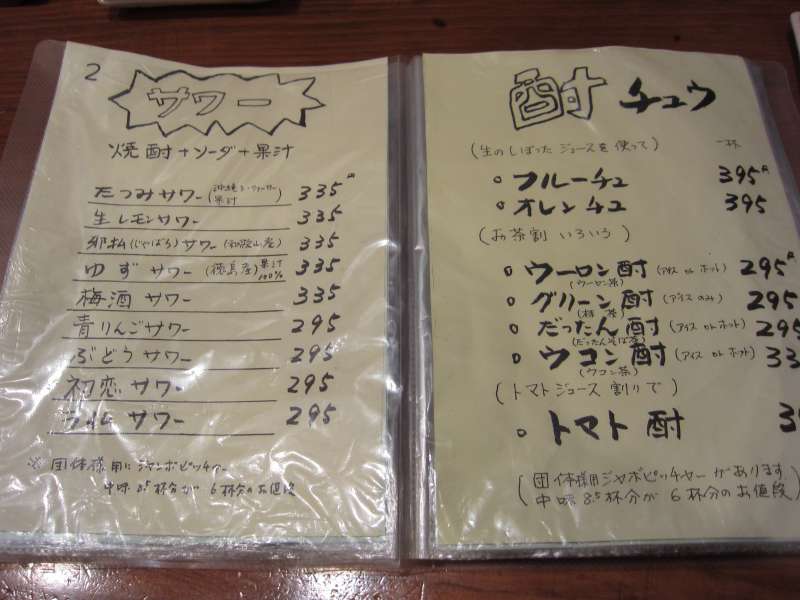 2
サワー
焼酎+ソーダ+果汁
たつみサワー 果汁 335円
生レモンサワー 335
邪払(じゃばら)サワー(和歌山産) 335
ゆずサワー(徳島産)果汁100% 335
梅酒サワー 335
青りんごサワー 295
ぶどうサワー 295
初恋サワー 295
ライムサワー 295
※団体様用にジャンボピッチャー
中味8.5杯分が6杯分のお値段
酎 チュウ
(生のしぼったジュースを使って) 一杯
○フルーチュ 395円
○オレンチュ 395
(お茶割いろいろ)
○ウーロン酎(アイス or ホット) 295円
(ウーロン茶)
○グリーン酎(アイスのみ) 295
(緑茶)
○だったん酎(アイス or ホット) 295
(だったんそば茶)
○ウコン酎(アイス or ホット) 33
(ウコン茶)
(トマトジュース割りで)
○トマト酎 3
(団体様用ジャンボピッチャーがあります
中味8.5杯分が6杯分のお値段)